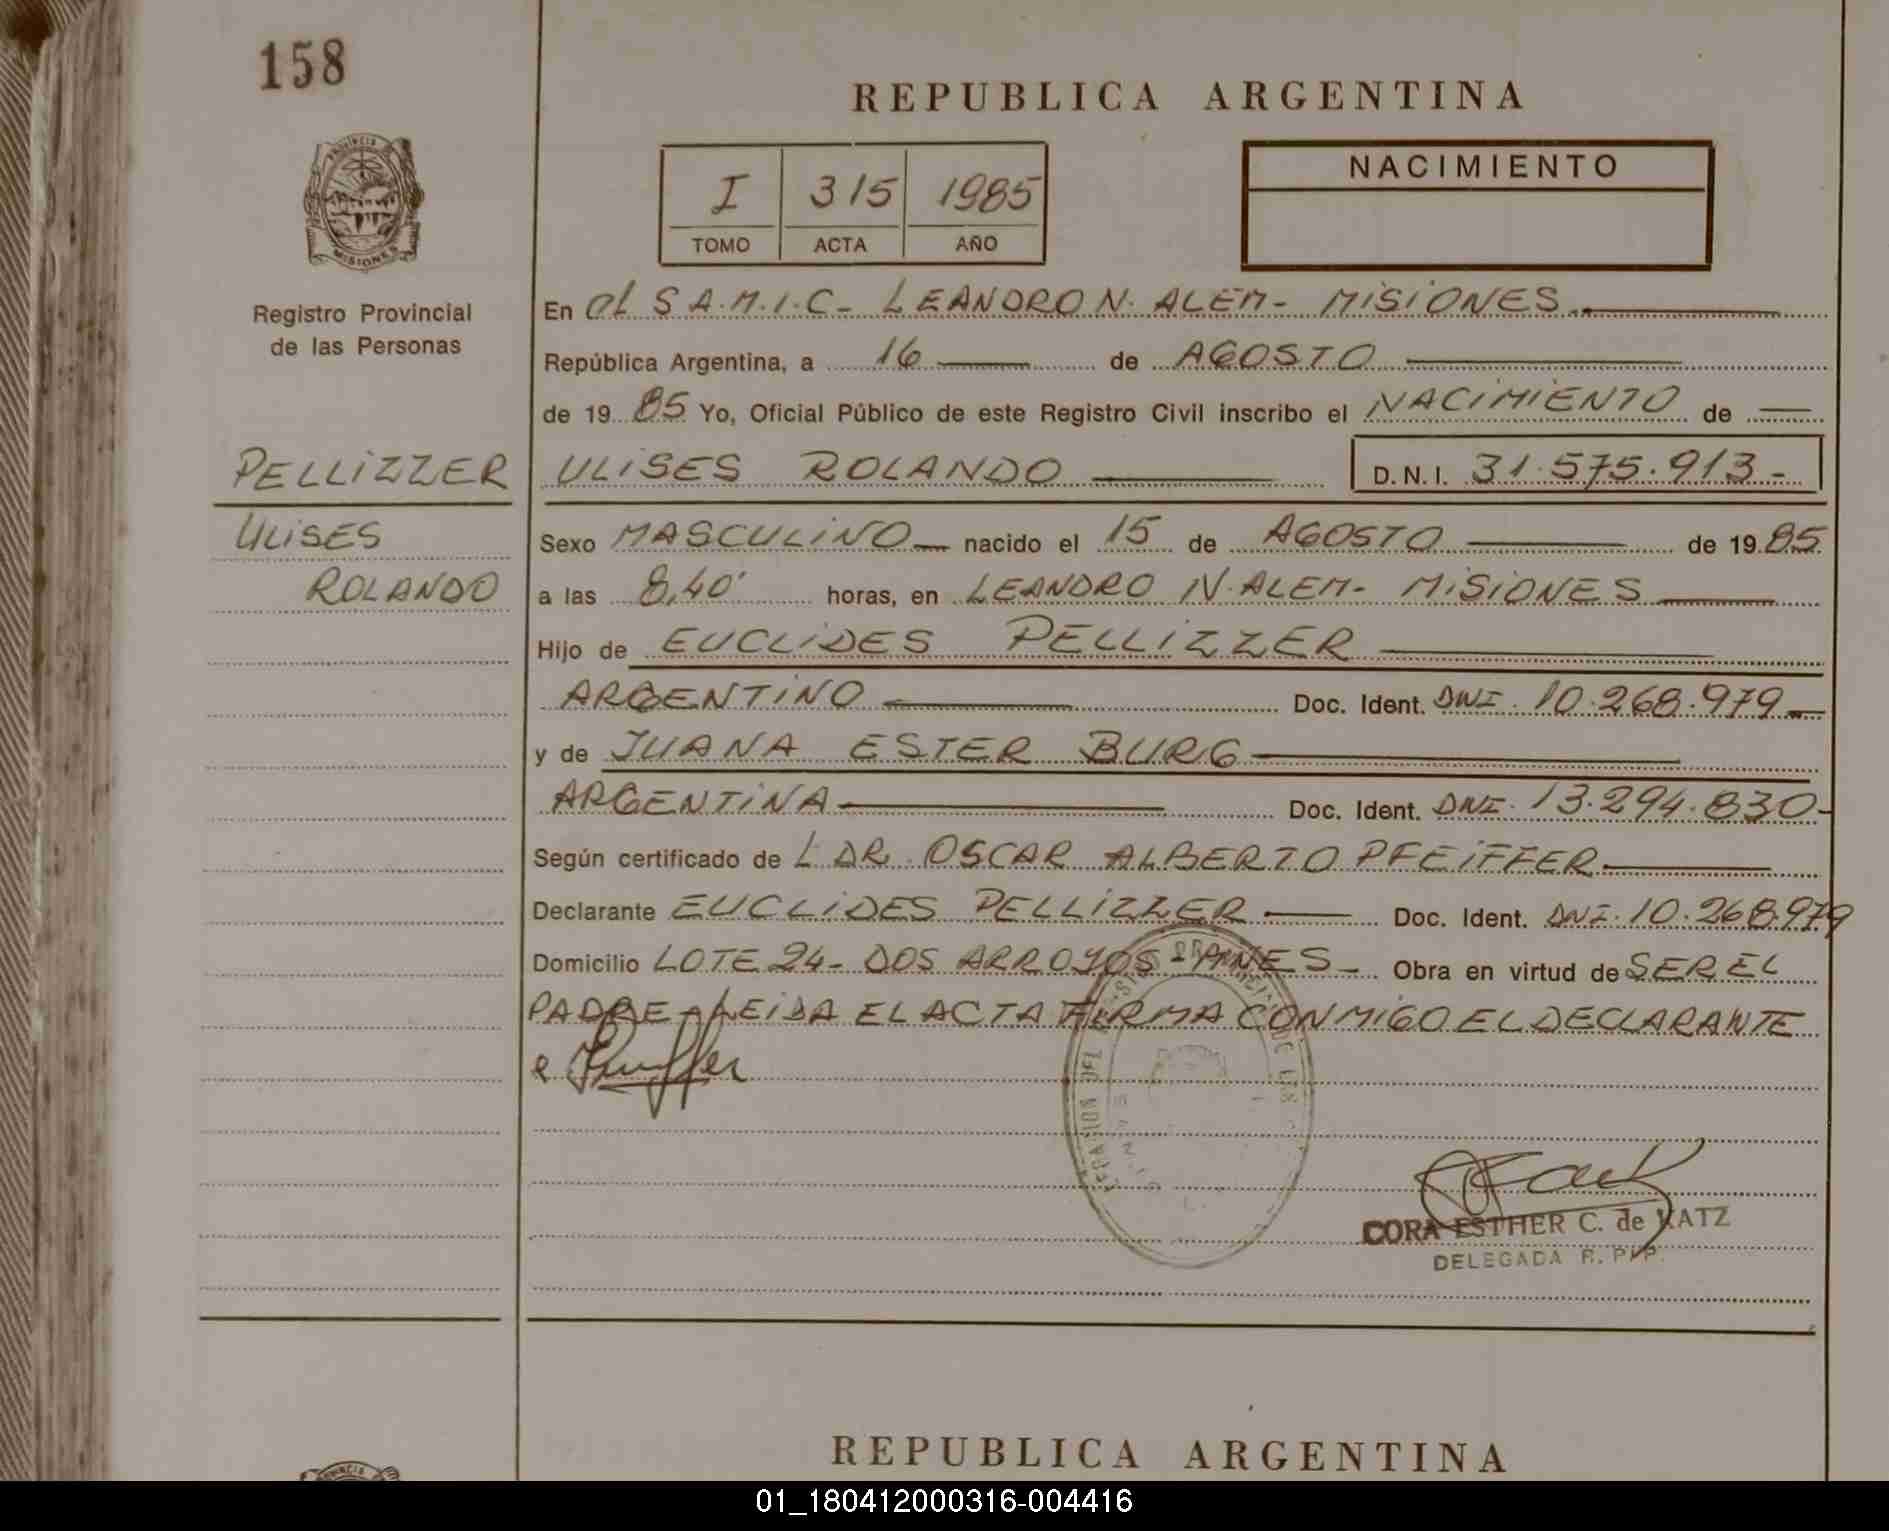 158
REPUBLICA ARGENTINA
PROVINCIA
MISIONES
I 315 1985
TOMO ACTA AÑO
NACIMIENTO
Registro Provincial
de las Personas
En OL S A.M.I.C- LEANDRO N. ALEM- MISIONES
República Argentina, a 16 de AGOSTO
de 1985 Yo, Oficial Público de este Registro Civil inscribo el NACIMIENTO de
PELLIZZER ULISES ROLANDO D.N.I. 31.575.913.-
ULISES
ROLANDO
Sexo MASCULINO nacido el 15 de AGOSTO de 1985
a las 8,40' horas, en LEANDRO N. ALEM- MISIONES
Hijo de EUCLIDES PELLIZZER
ARGENTINO Doc. Ident. DNI. 10.268.979
y de JUANA ESTER BURG
ARGENTINA Doc. Ident. DNI. 13.294.830-
Según certificado de L DR. OSCAR ALBERTO PFEIFFER
Declarante EUCLIDES PELLIZZER Doc. Ident. DNI. 10.268.979
Domicilio LOTE 24- DOS ARROYOS- Obra en virtud de SER EL
PADRE-LEIDA EL ACTA FIRMA CONMIGO EL DECLARANTE
CORA ESTHER C. de KATZ
DELEGADA R. P. P.
REPUBLICA ARGENTINA
01_180412000316-004416